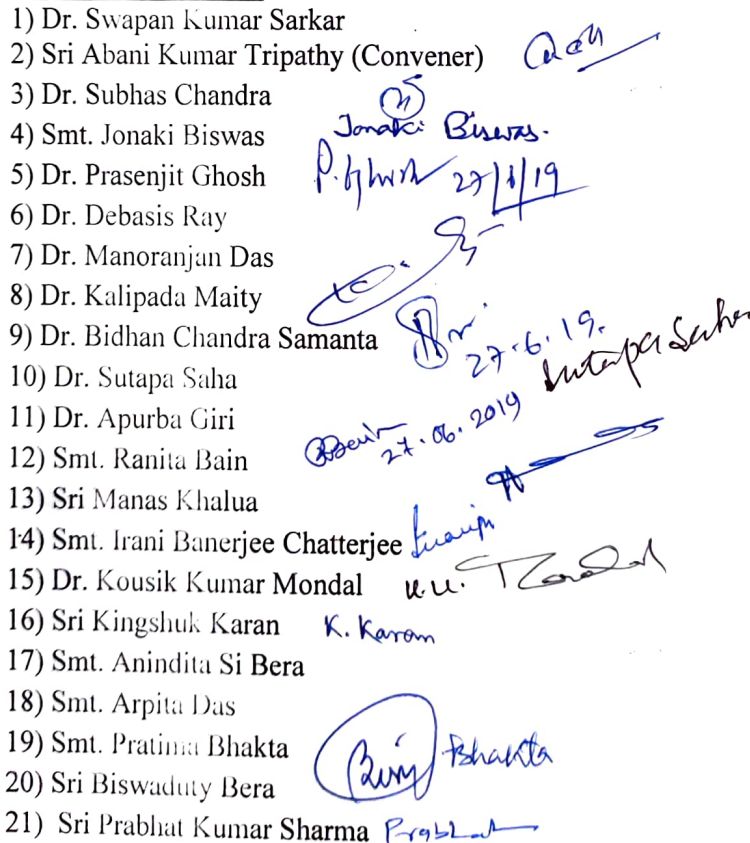 1) Dr. Swapan Kumar Sarkar
2) Sri Abani Kumar Tripathy (Convener)
3) Dr. Subhas Chandra
4) Smt. Jonaki Biswas Jonaki Biswas.
5) Dr. Prasenjit Ghosh P. Ghosh
6) Dr. Debasis Ray
7) Dr. Manoranjan Das
8) Dr. Kalipada Maity
9) Dr. Bidhan Chandra Samanta 27.6.19.
10) Dr. Sutapa Saha Sutapa Saha
11) Dr. Apurba Giri
12) Smt. Ranita Bain RBain 27.06.2019
13) Sri Manas Khalua
14) Smt. Irani Banerjee Chatterjee
15) Dr. Kousik Kumar Mondal K.K. Mondal
16) Sri Kingshuk Karan K. Karan
17) Smt. Anindita Si Bera
18) Smt. Arpita Das
19) Smt. Pratima Bhakta Bhakta
20) Sri Biswaduty Bera
21) Sri Prabhat Kumar Sharma Prabhat